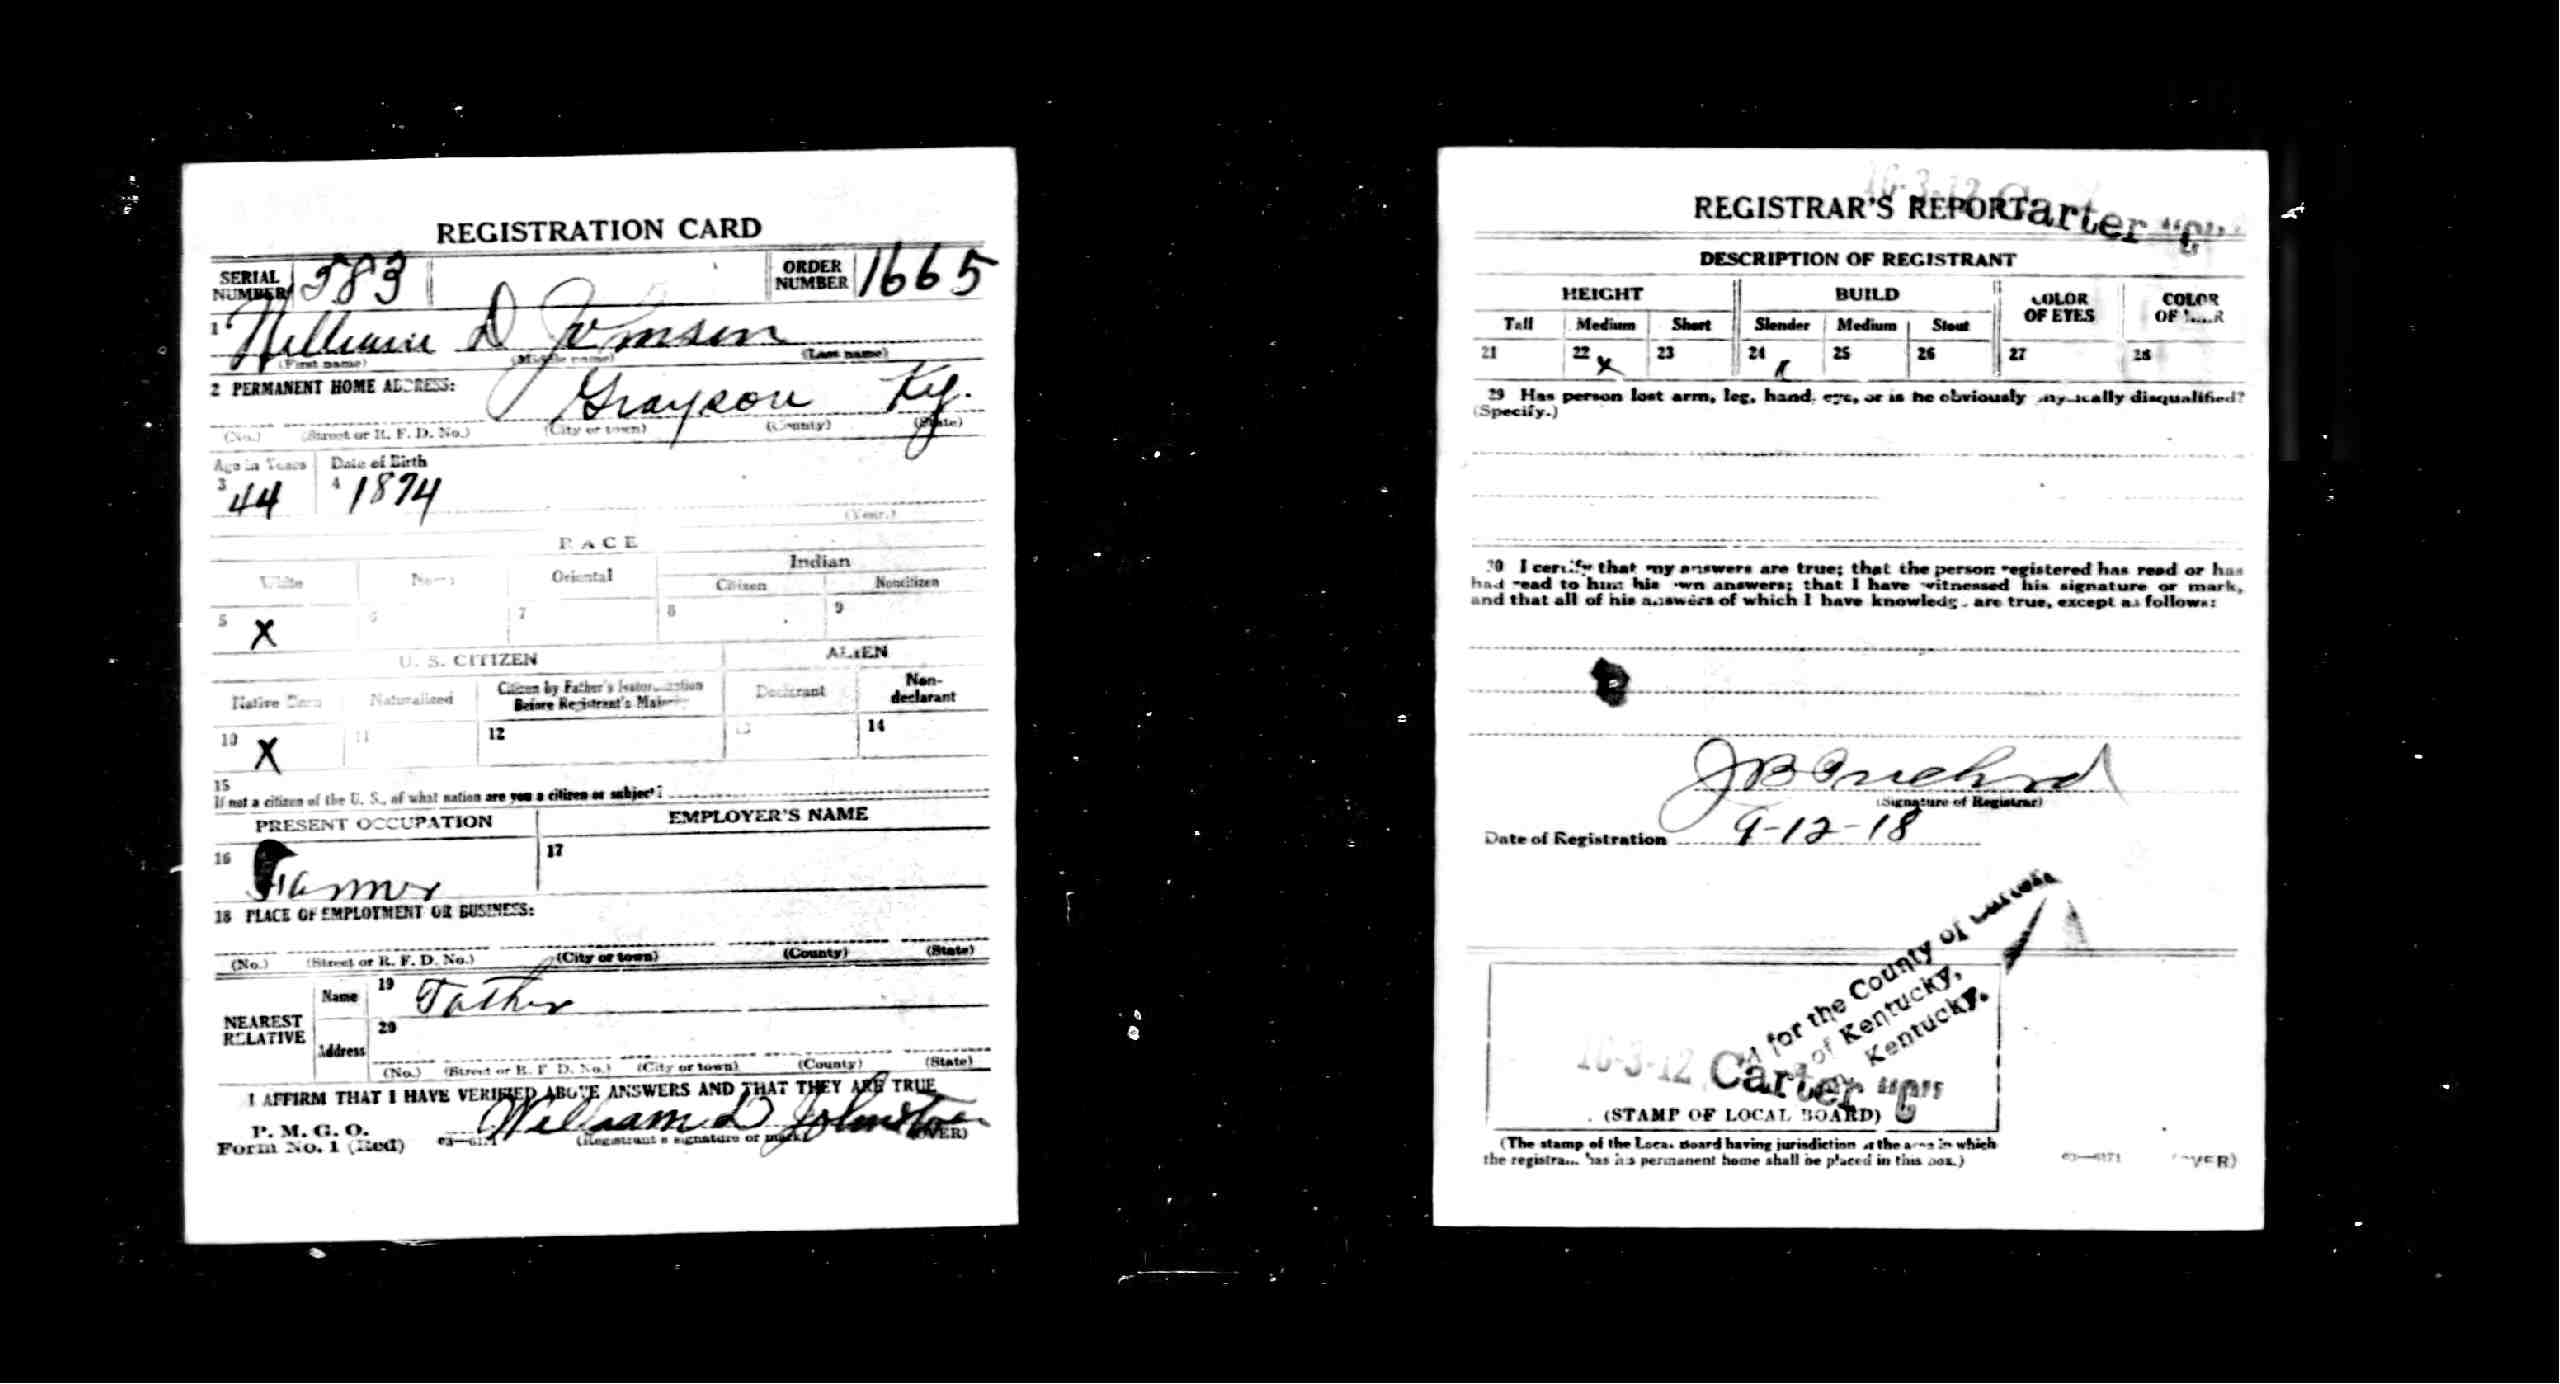 REGISTRATION CARD
SERIAL NUMBER 583 ORDER NUMBER 1665
1 William D Johnson
(First name) (Middle name) (Last name)
2 PERMANENT HOME ADDRESS:
Grayson Ky.
(No.) (Street or R. F. D. No.) (City or town) (County) (State)
Age in Years Date of Birth
3 44 4 1874
(Year.)
RACE
White Oriental Indian
Citizen Noncitizen
5 X 6 7 8 9
U. S. CITIZEN ALIEN
Native Born Naturalized Citizen by Father's Naturalization Before Registrant's Majority Declarant Non-declarant
10 X 11 12 13 14
15
If not a citizen of the U. S., of what nation are you a citizen or subject?
PRESENT OCCUPATION EMPLOYER'S NAME
16 Farmer 17
18 PLACE OF EMPLOYMENT OR BUSINESS:
(No.) (Street or R. F. D. No.) (City or town) (County) (State)
NEAREST RELATIVE Name 19 Father
Address 20
(No.) (Street or R. F. D. No.) (City or town) (County) (State)
I AFFIRM THAT I HAVE VERIFIED ABOVE ANSWERS AND THAT THEY ARE TRUE
P. M. G. O.
Form No. 1 (Red) 03—6171 William D Johnston
(Registrant's signature or mark) (OVER)
16-3-12 Carter "C"
REGISTRAR'S REPORT
DESCRIPTION OF REGISTRANT
HEIGHT BUILD COLOR OF EYES COLOR OF HAIR
Tall Medium Short Slender Medium Stout
21 22 x 23 24 25 26 27 28
29 Has person lost arm, leg, hand, eye, or is he obviously physically disqualified?
(Specify.)
30 I certify that my answers are true; that the person registered has read or has
had read to him his own answers; that I have witnessed his signature or mark,
and that all of his answers of which I have knowledge are true, except as follows:
(Signature of Registrar)
Date of Registration 9-12-18
for the County of Carter
of Kentucky,
Kentucky.
16-3-12 Carter "C"
(STAMP OF LOCAL BOARD)
(The stamp of the Local Board having jurisdiction of the area in which
the registrant has his permanent home shall be placed in this box.)
03—6171 (OVER)